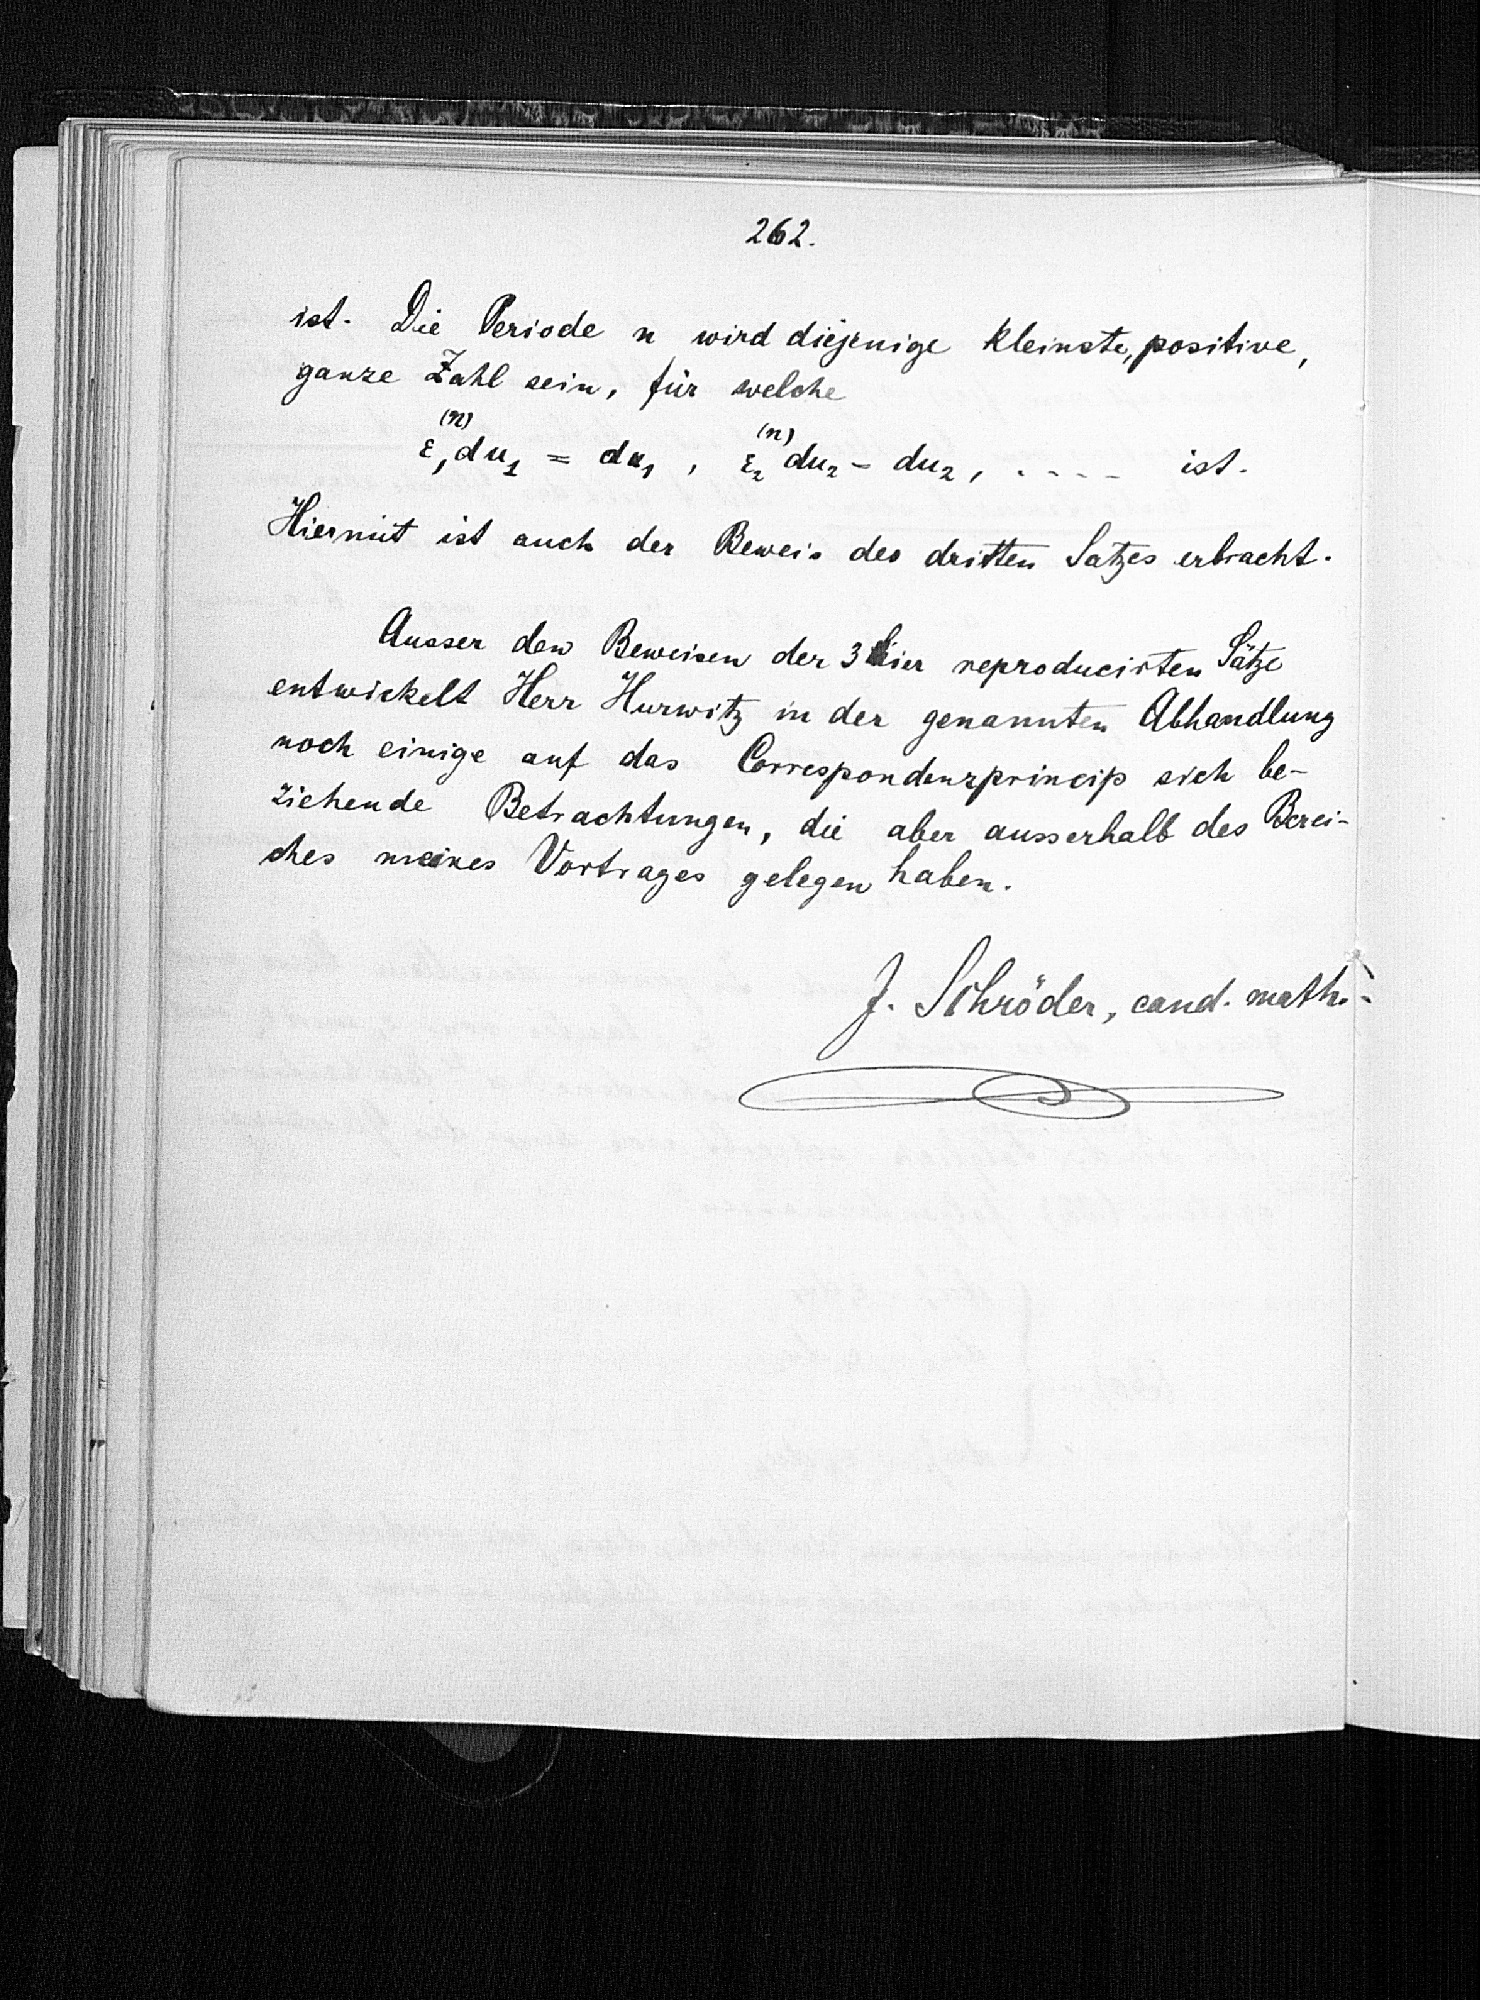 262.
ist. Die Periode n wird diejenige kleinste, positive,
ganze Zahl sein, für welche
ε₁⁽ⁿ⁾ du₁ = du₁ , ε₂⁽ⁿ⁾ du₂ = du₂ , . . . . ist.
Hiermit ist auch der Beweis des dritten Satzes erbracht.
Ausser den Beweisen der 3 hier reproducirten Sätze
entwickelt Herr Hurwitz in der genannten Abhandlung
noch einige auf das Correspondenzprincip sich be-
ziehende Betrachtungen, die aber ausserhalb des Berei-
ches meines Vortrages gelegen haben.
J. Schröder, cand. math.